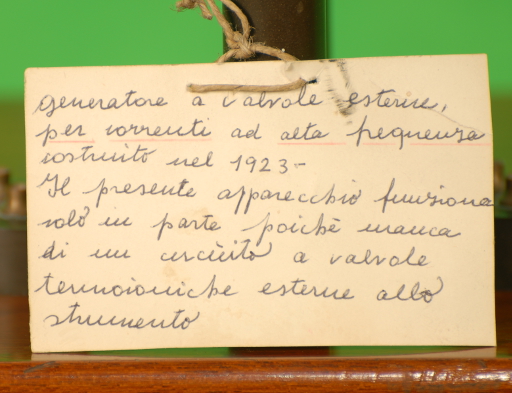 generatore a valvole esterne,
per correnti ad alta frequenza
costruito nel 1923-
Il presente apparecchio funziona
solo in parte poichè manca
di un circuito a valvole
termoioniche esterne allo
strumento